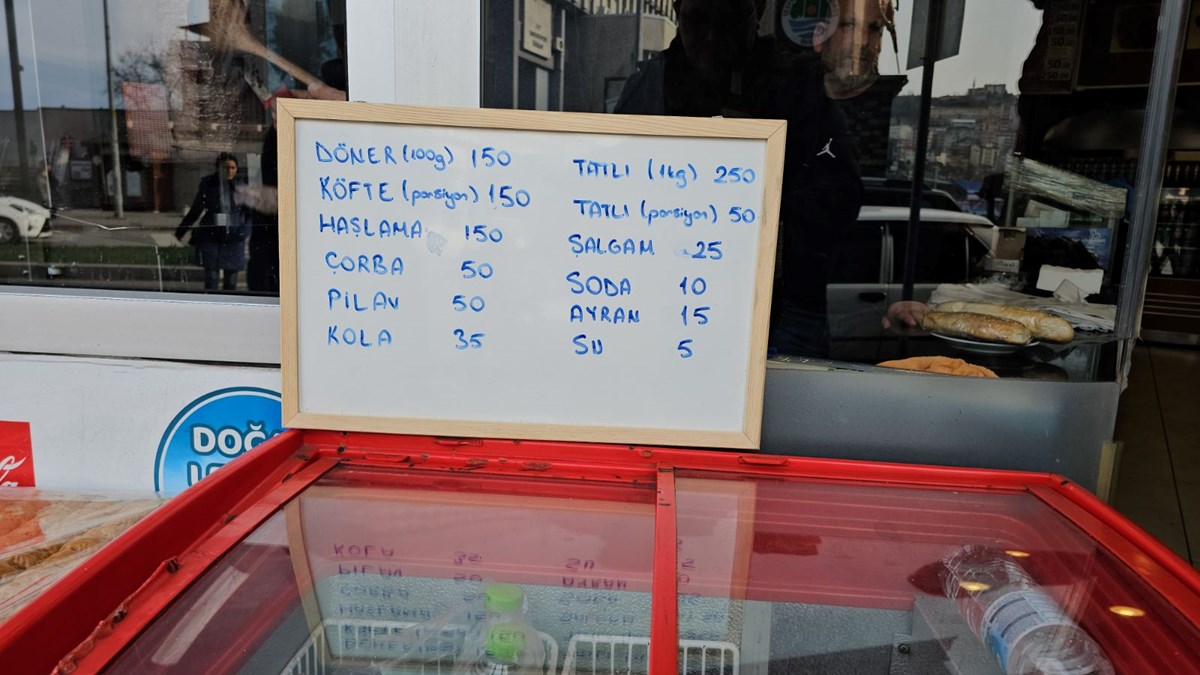 DÖNER (100g) 150
KÖFTE (porsiyon) 150
HAŞLAMA 150
ÇORBA 50
PİLAV 50
KOLA 35
TATLI (1kg) 250
TATLI (porsiyon) 50
ŞALGAM 25
SODA 10
AYRAN 15
SU 5
DOĞ